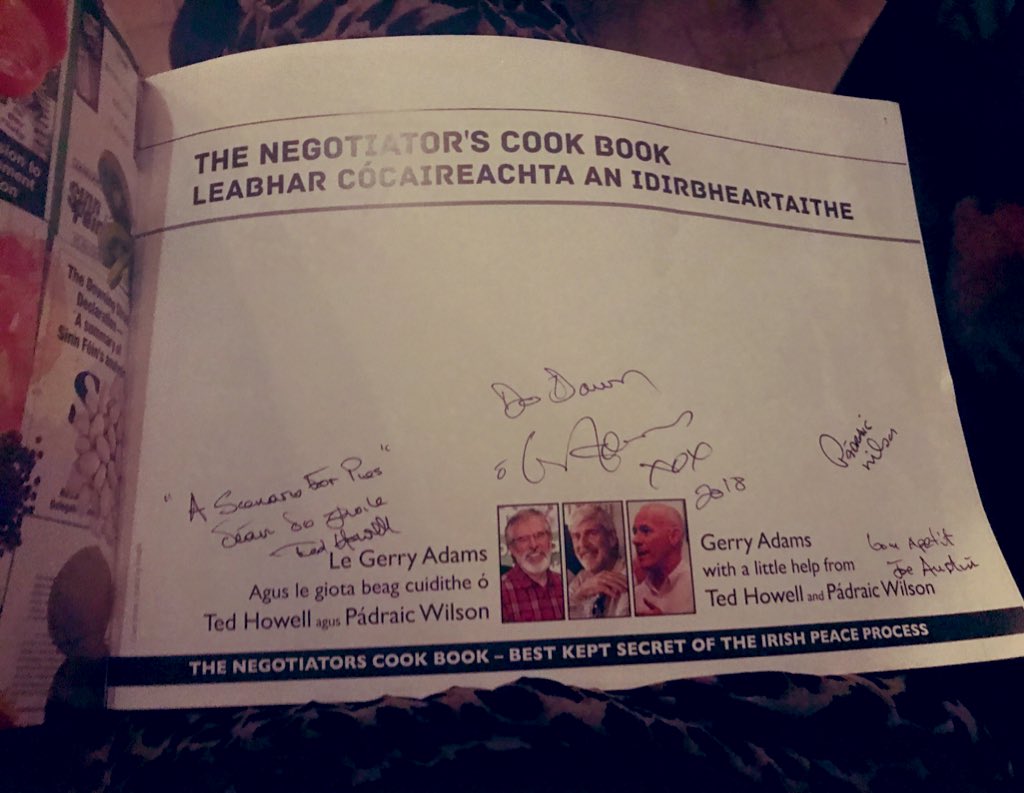 THE NEGOTIATOR'S COOK BOOK
LEABHAR CÓCAIREACHTA AN IDIRBHEARTAITHE
Do Dawn
ó Gerry Adams
xox
2018
Pádraic
Wilson
"A Scenario For Pies"
Ted Howell
Bon Apetit
Joe Austin
Le Gerry Adams
Agus le giota beag cuidithe ó
Ted Howell agus Pádraic Wilson
Gerry Adams
with a little help from
Ted Howell and Pádraic Wilson
THE NEGOTIATORS COOK BOOK – BEST KEPT SECRET OF THE IRISH PEACE PROCESS
The Downing
Declaration –
A summary of
Sinn Féin's